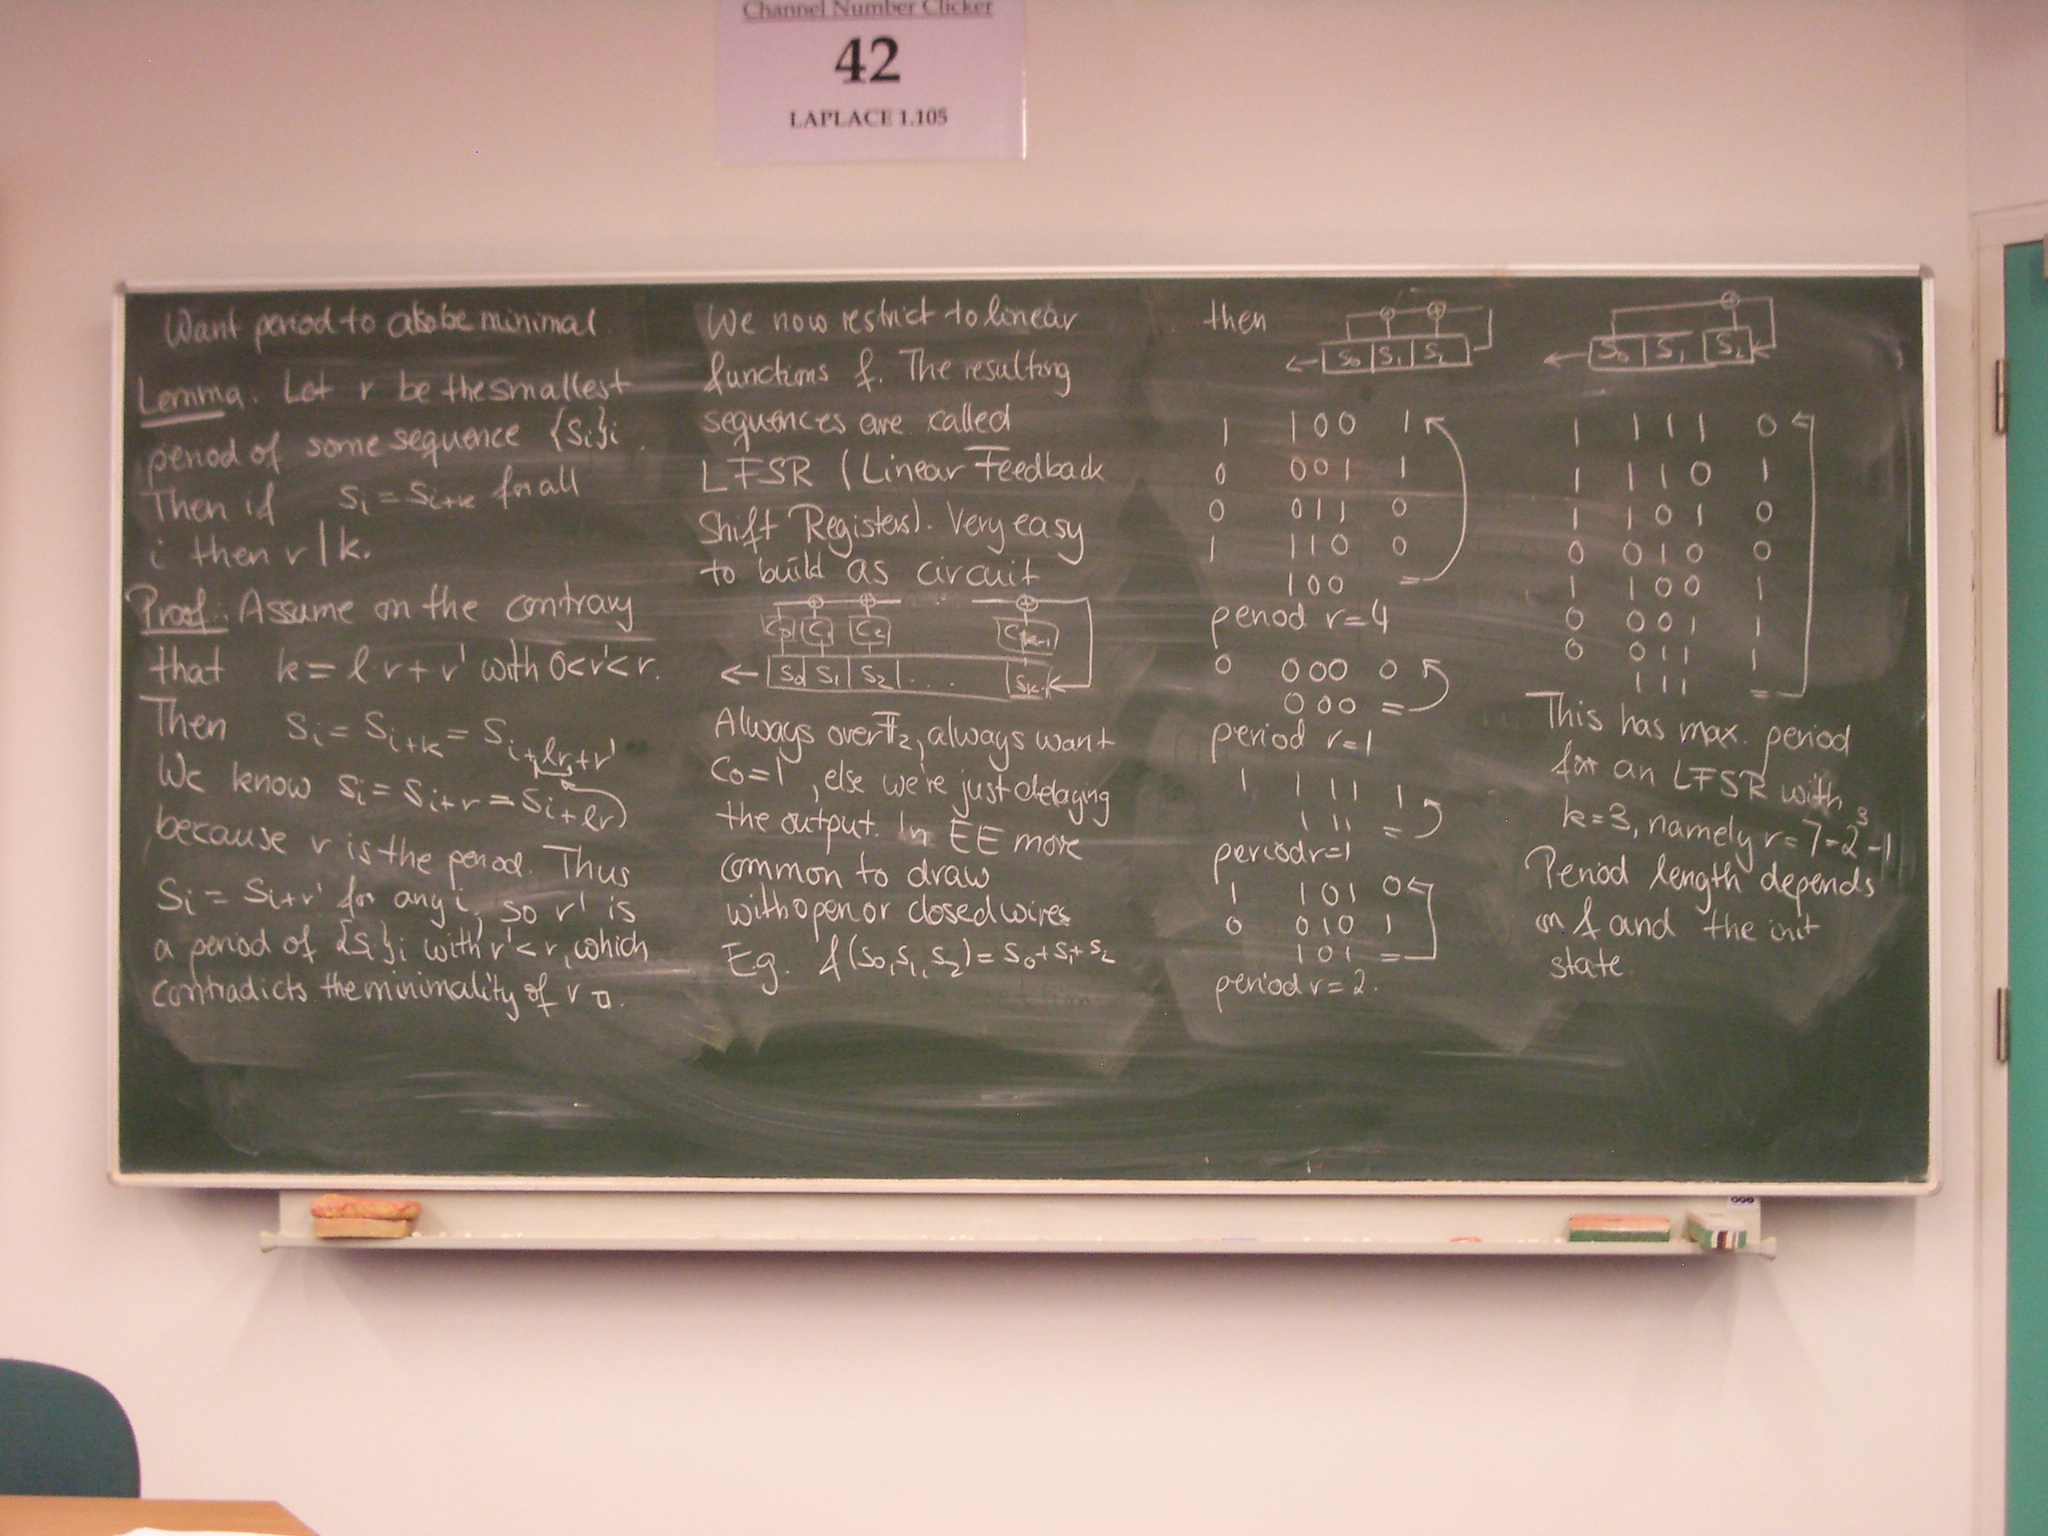 Channel Number Clicker
42
LAPLACE 1.105
Want period to also be minimal.
Lemma. Let r be the smallest
period of some sequence {Si}i.
Then if Si = Si+k for all
i then r | k.
Proof: Assume on the contrary
that k = l·r + r' with 0<r'<r.
Then Si = Si+k = Si+lr+r'
We know Si = Si+r = Si+lr
because r is the period. Thus
Si = Si+r' for any i, so r' is
a period of {Si}i with r'<r, which
contradicts the minimality of r □.
We now restrict to linear
functions f. The resulting
sequences are called
LFSR (Linear Feedback
Shift Registers). Very easy
to build as circuit
⊕ ⊕ ... ⊕
C0 C1 C2 Ck-1
← S0 | S1 | S2 | ... Sk-1
Always over F2, always want
C0=1, else we're just delaying
the output. In EE more
common to draw
with open or closed wires
Eg. f(S0,S1,S2) = S0+S1+S2
then
← S0 | S1 | S2
1 100 1
0 001 1
0 011 0
1 110 0
100 =
period r=4
0 000 0
000 =
period r=1
1 111 1
111 =
period r=1
1 101 0
0 010 1
101 =
period r=2.
← S0 | S1 | S2
1 111 0
1 110 1
1 101 0
0 010 0
1 100 1
0 001 1
0 011 1
111 =
This has max. period
for an LFSR with
k=3, namely r=7=2³-1
Period length depends
on f and the init
state.